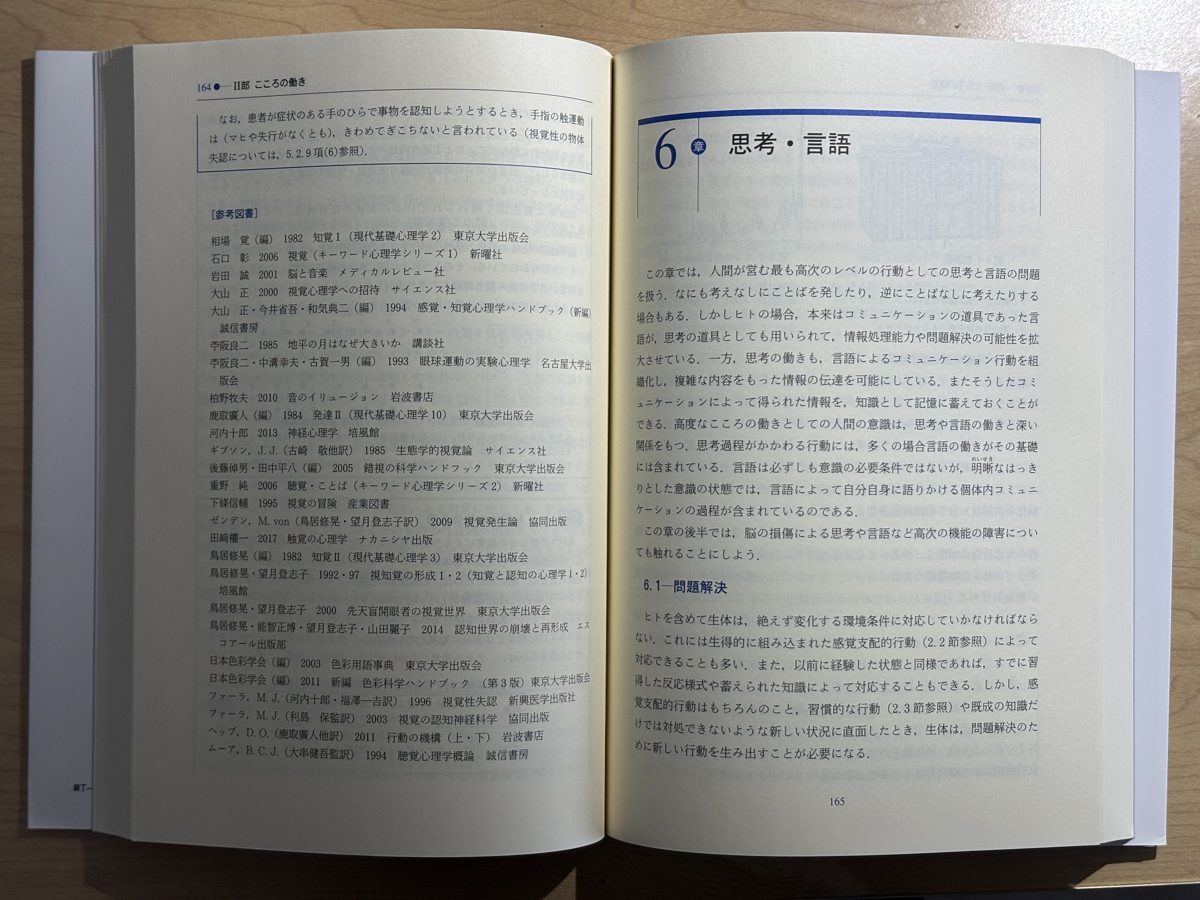 164●―II部 こころの働き
なお，患者が症状のある手のひらで事物を認知しようとするとき，手指の触運動
は（マヒや失行がなくとも），きわめてぎこちないと言われている（視覚性の物体
失認については，5.2.9項(6)参照）．
［参考図書］
相場 覚（編） 1982 知覚Ⅰ（現代基礎心理学2） 東京大学出版会
石口 彰 2006 視覚（キーワード心理学シリーズ1） 新曜社
岩田 誠 2001 脳と音楽 メディカルレビュー社
大山 正 2000 視覚心理学への招待 サイエンス社
大山 正・今井省吾・和気典二（編） 1994 感覚・知覚心理学ハンドブック（新編）
誠信書房
苧阪良二 1985 地平の月はなぜ大きいか 講談社
苧阪良二・中溝幸夫・古賀一男（編） 1993 眼球運動の実験心理学 名古屋大学出
版会
柏野牧夫 2010 音のイリュージョン 岩波書店
鹿取廣人（編） 1984 発達Ⅱ（現代基礎心理学10） 東京大学出版会
河内十郎 2013 神経心理学 培風館
ギブソン，J.J.（古崎 敬他訳） 1985 生態学的視覚論 サイエンス社
後藤倬男・田中平八（編） 2005 錯視の科学ハンドブック 東京大学出版会
重野 純 2006 聴覚・ことば（キーワード心理学シリーズ2） 新曜社
下條信輔 1995 視覚の冒険 産業図書
ゼンデン，M. von（鳥居修晃・望月登志子訳） 2009 視覚発生論 協同出版
田﨑權一 2017 触覚の心理学 ナカニシヤ出版
鳥居修晃（編） 1982 知覚Ⅱ（現代基礎心理学3） 東京大学出版会
鳥居修晃・望月登志子 1992・97 視知覚の形成1・2（知覚と認知の心理学1・2）
培風館
鳥居修晃・望月登志子 2000 先天盲開眼者の視覚世界 東京大学出版会
鳥居修晃・能智正博・望月登志子・山田麗子 2014 認知世界の崩壊と再形成 エス
コアール出版部
日本色彩学会（編） 2003 色彩用語事典 東京大学出版会
日本色彩学会（編） 2011 新編 色彩科学ハンドブック （第3版）東京大学出版会
ファーラ，M.J.（河内十郎・福澤一吉訳） 1996 視覚性失認 新興医学出版社
ファーラ，M.J.（利島 保監訳） 2003 視覚の認知神経科学 協同出版
ヘッブ，D.O.（鹿取廣人他訳） 2011 行動の機構（上・下） 岩波書店
ムーア，B.C.J.（大串健吾監訳） 1994 聴覚心理学概論 誠信書房
装丁―
6章 思考・言語
この章では，人間が営む最も高次のレベルの行動としての思考と言語の問題
を扱う．なにも考えなしにことばを発したり，逆にことばなしに考えたりする
場合もある．しかしヒトの場合，本来はコミュニケーションの道具であった言
語が，思考の道具としても用いられて，情報処理能力や問題解決の可能性を拡
大させている．一方，思考の働きも，言語によるコミュニケーション行動を組
織化し，複雑な内容をもった情報の伝達を可能にしている．またそうしたコミ
ュニケーションによって得られた情報を，知識として記憶に蓄えておくことが
できる．高度なこころの働きとしての人間の意識は，思考や言語の働きと深い
関係をもつ．思考過程がかかわる行動には，多くの場合言語の働きがその基礎
には含まれている．言語は必ずしも意識の必要条件ではないが，明晰（めいせき）なはっき
りとした意識の状態では，言語によって自分自身に語りかける個体内コミュニ
ケーションの過程が含まれているのである．
この章の後半では，脳の損傷による思考や言語など高次の機能の障害につい
ても触れることにしよう．
6.1―問題解決
ヒトを含めて生体は，絶えず変化する環境条件に対応していかなければなら
ない．これには生得的に組み込まれた感覚支配的行動（2.2節参照）によって
対応できることも多い．また，以前に経験した状態と同様であれば，すでに習
得した反応様式や蓄えられた知識によって対応することもできる．しかし，感
覚支配的行動はもちろんのこと，習慣的な行動（2.3節参照）や既成の知識だ
けでは対処できないような新しい状況に直面したとき，生体は，問題解決のた
めに新しい行動を生み出すことが必要になる．
165